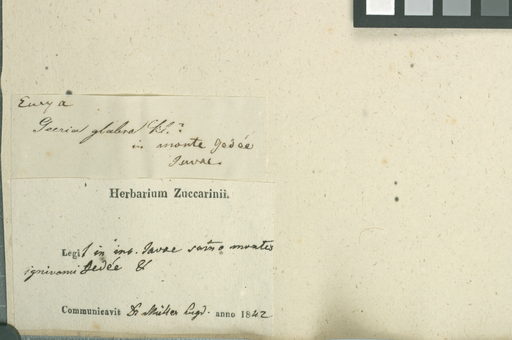 Eurya
Geeria glabra Bl.?
in monte Gedée
Javae
Herbarium Zuccarinii.
Legit in ins. Javae montis
ignivomi Gedée &
Communicavit Dr Müller Lugd. anno 1842